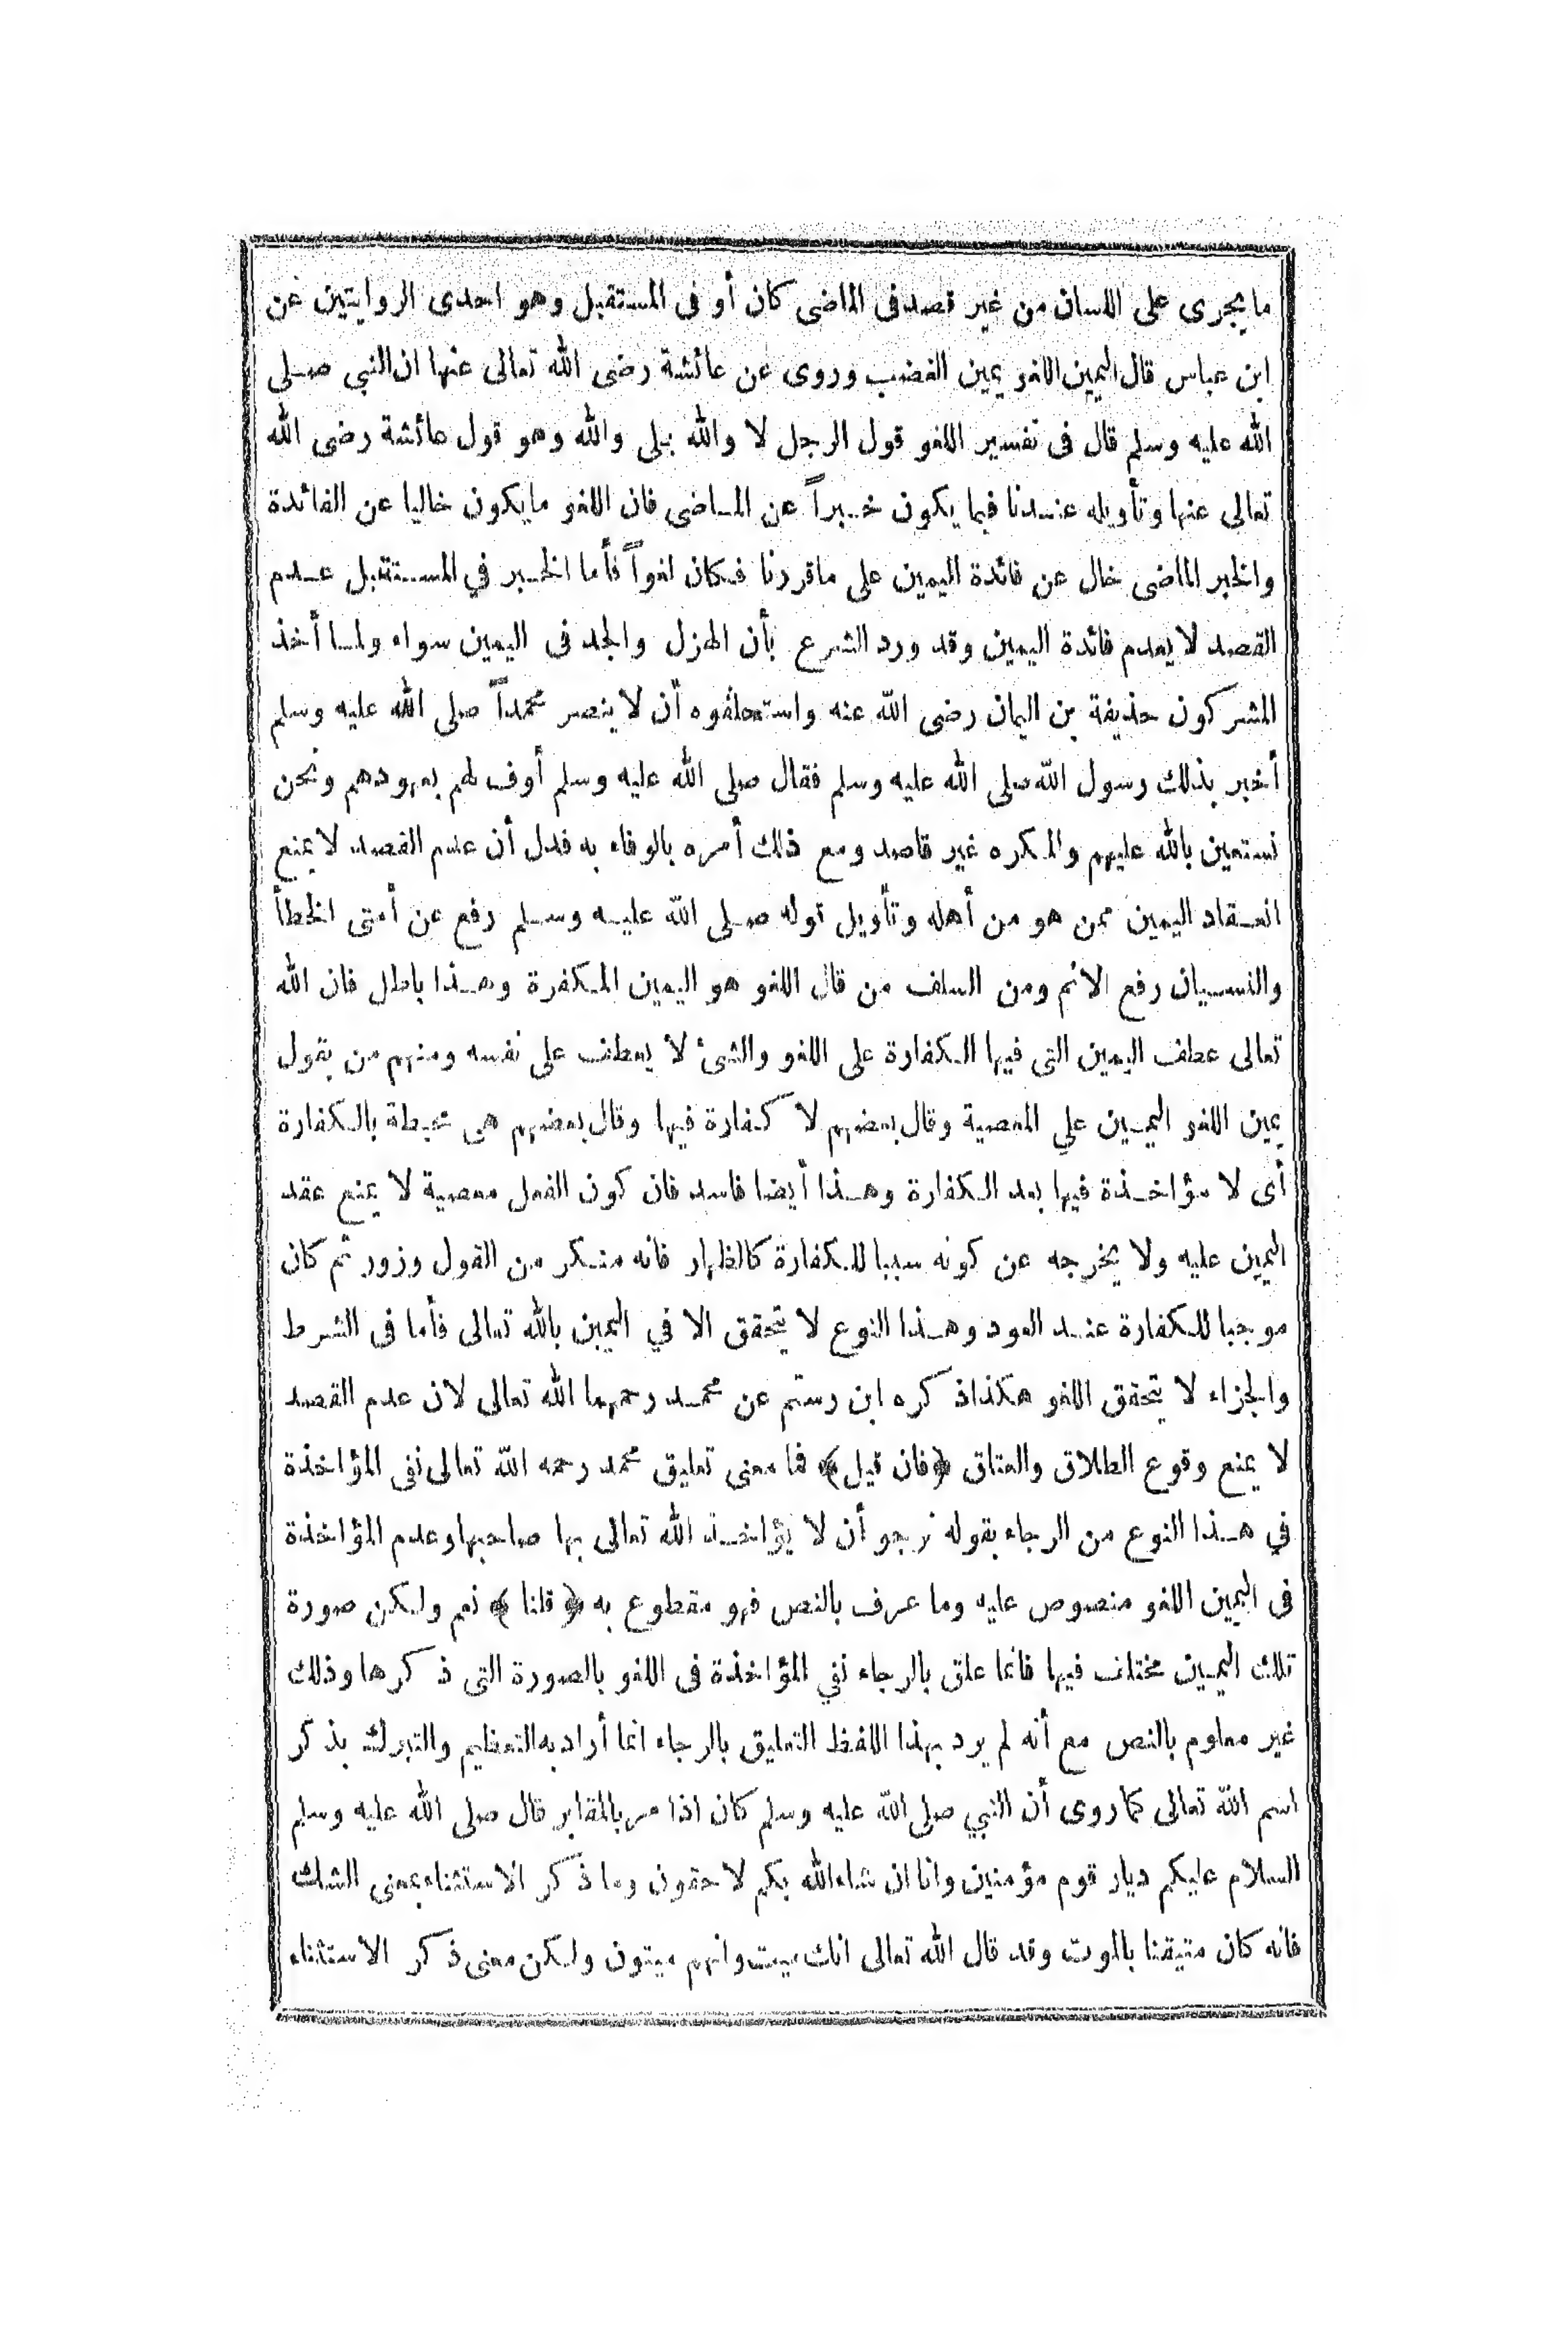 ما يجرى على اللسان من غير قصد فى الماضى كان أو فى المستقبل وهو احدى الروايتين عن
ابن عباس قال اليمين اللغو يمين الغضب وروى عن عائشة رضى الله تعالى عنها ان النبي صلى
الله عليه وسلم قال فى تفسير اللغو قول الرجل لا والله بلى والله وهو قول عائشة رضى الله
تعالى عنها وتأويله عندنا فيما يكون خبراً عن الماضى فان اللغو ما يكون خاليا عن الفائدة
والخبر الماضى خال عن فائدة اليمين على ما قررنا فكان لغواً فأما الخبر في المستقبل عدم
القصد لا يعدم فائدة اليمين وقد ورد الشرع بأن الهزل والجد فى اليمين سواء ولما أخذ
المشركون حذيفة بن اليمان رضى الله عنه واستحلفوه أن لا ينصر محمداً صلى الله عليه وسلم
أخبر بذلك رسول الله صلى الله عليه وسلم فقال صلى الله عليه وسلم أوف لهم بعهودهم ونحن
نستعين بالله عليهم والمكره غير قاصد ومع ذلك أمره بالوفاء به فدل أن عدم القصد لا يمنع
انعقاد اليمين ممن هو من أهله وتأويل قوله صلى الله عليه وسلم رفع عن أمتى الخطأ
والنسيان رفع الاثم ومن السلف من قال اللغو هو اليمين المكفرة وهذا باطل فان الله
تعالى عطف اليمين التى فيها الكفارة على اللغو والشئ لا يعطف على نفسه ومنهم من يقول
يمين اللغو اليمين علي المعصية وقال بعضهم لا كفارة فيها وقال بعضهم هى محبطة بالكفارة
أى لا مؤاخذة فيها بعد الكفارة وهذا أيضا فاسد فان كون الفعل معصية لا يمنع عقد
اليمين عليه ولا يخرجه عن كونه سببا للكفارة كالظهار فانه منكر من القول وزور ثم كان
موجبا للكفارة عند العود وهذا النوع لا يتحقق الا في اليمين بالله تعالى فأما فى الشرط
والجزاء لا يتحقق اللغو هكذا ذكره ابن رستم عن محمد رحمهما الله تعالى لان عدم القصد
لا يمنع وقوع الطلاق والعتاق ﴿فان قيل﴾ فما معنى تعليق محمد رحمه الله تعالى نفى المؤاخذة
في هذا النوع من الرجاء بقوله نرجو أن لا يؤاخذ الله تعالى بها صاحبها وعدم المؤاخذة
فى اليمين اللغو منصوص عليه وما عرف بالنص فهو مقطوع به ﴿ قلنا ﴾ نعم ولكن صورة
تلك اليمين مختلف فيها فانما علق بالرجاء نفي المؤاخذة فى اللغو بالصورة التى ذكرها وذلك
غير معلوم بالنص مع أنه لم يرد بهذا اللفظ التعليق بالرجاء انما أراد به التعظيم والتبرك بذكر
اسم الله تعالى كما روى أن النبي صلى الله عليه وسلم كان اذا مر بالمقابر قال صلى الله عليه وسلم
السلام عليكم ديار قوم مؤمنين وانا ان شاء الله بكم لاحقون وما ذكر الاستثناء بمعنى الشك
فانه كان متيقنا بالموت وقد قال الله تعالى انك ميت وانهم ميتون ولكن معنى ذكر الاستثناء